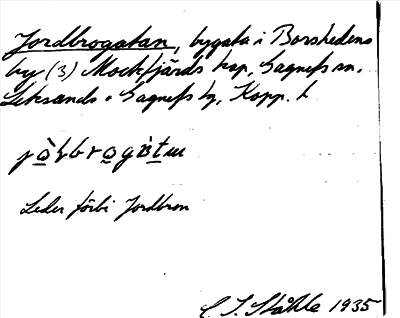 Jordbrogatan, bygata i Borshedens
by (3) Mockfjärds kap, Gagnefs sn.
Leksands o Gagnefs tg, Kopp. l.
Leder förbi Jordbron
C. I. Ståhle 1935